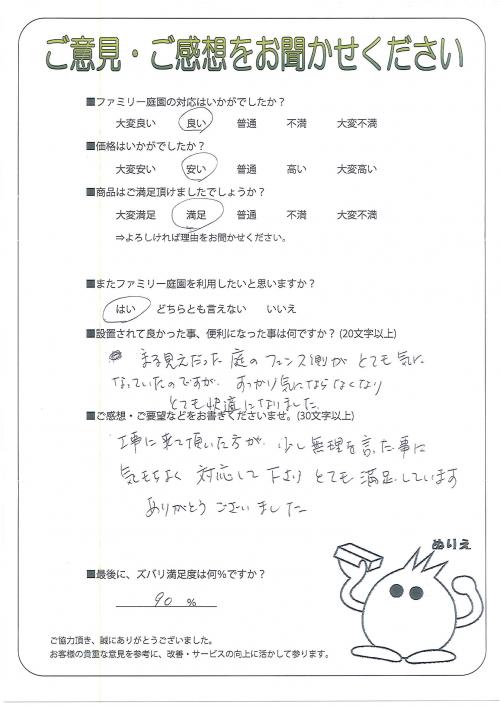 ご意見・ご感想をお聞かせください
■ファミリー庭園の対応はいかがでしたか？
大変良い 良い 普通 不満 大変不満
■価格はいかがでしたか？
大変安い 安い 普通 高い 大変高い
■商品はご満足頂けましたでしょうか？
大変満足 満足 普通 不満 大変不満
⇒よろしければ理由をお聞かせください。
■またファミリー庭園を利用したいと思いますか？
はい どちらとも言えない いいえ
■設置されて良かった事、便利になった事は何ですか？(20文字以上)
まる見えだった庭のフェンス側がとても気に
なっていたのですが、すっかり気にならなくなり
とても快適になりました。
■ご感想・ご要望などをお書きくださいませ。(30文字以上)
工事に来て頂いた方が、少し無理を言った事に
気もちよく対応して下さり とても満足しています
ありがとうございました
ぬりえ
■最後に、ズバリ満足度は何%ですか？
90 %
ご協力頂き、誠にありがとうございました。
お客様の貴重な意見を参考に、改善・サービスの向上に活かして参ります。